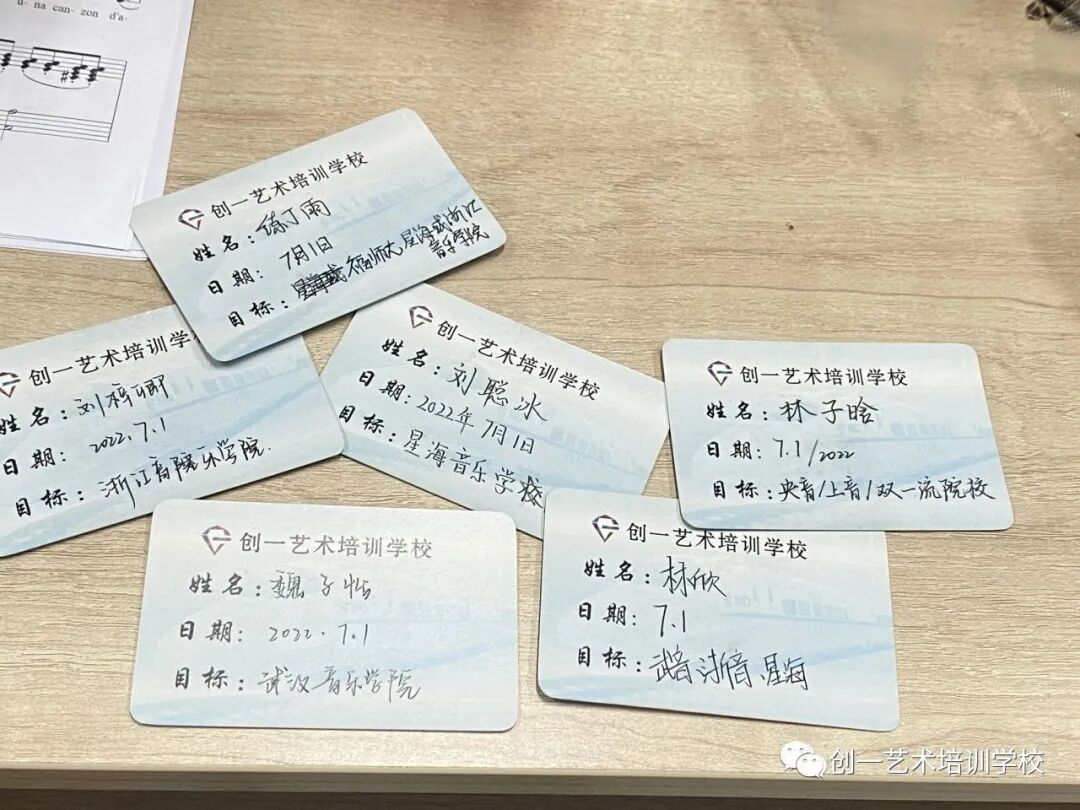 u- na can- zon d'a-
创一艺术培训学校
姓名:练丁雨
日期:7月1日
目标:福师大星海或浙江
音乐学院
创一艺术培训学
姓名:刘梓卿
日期:2022.7.1
目标:浙江音乐学院.
创一艺术培训学校
姓名:刘聪冰
日期:2022年7月1日
目标:星海音乐学校
创一艺术培训学校
姓名:林子晗
日期:7.1/2022
目标:央音/上音/双一流院校
创一艺术培训学校
姓名:魏子怡
日期:2022.7.1
目标:武汉音乐学院
创一艺术培训学校
姓名:林欣
日期:7.1
目标:武音 浙音 星海
创一艺术培训学校